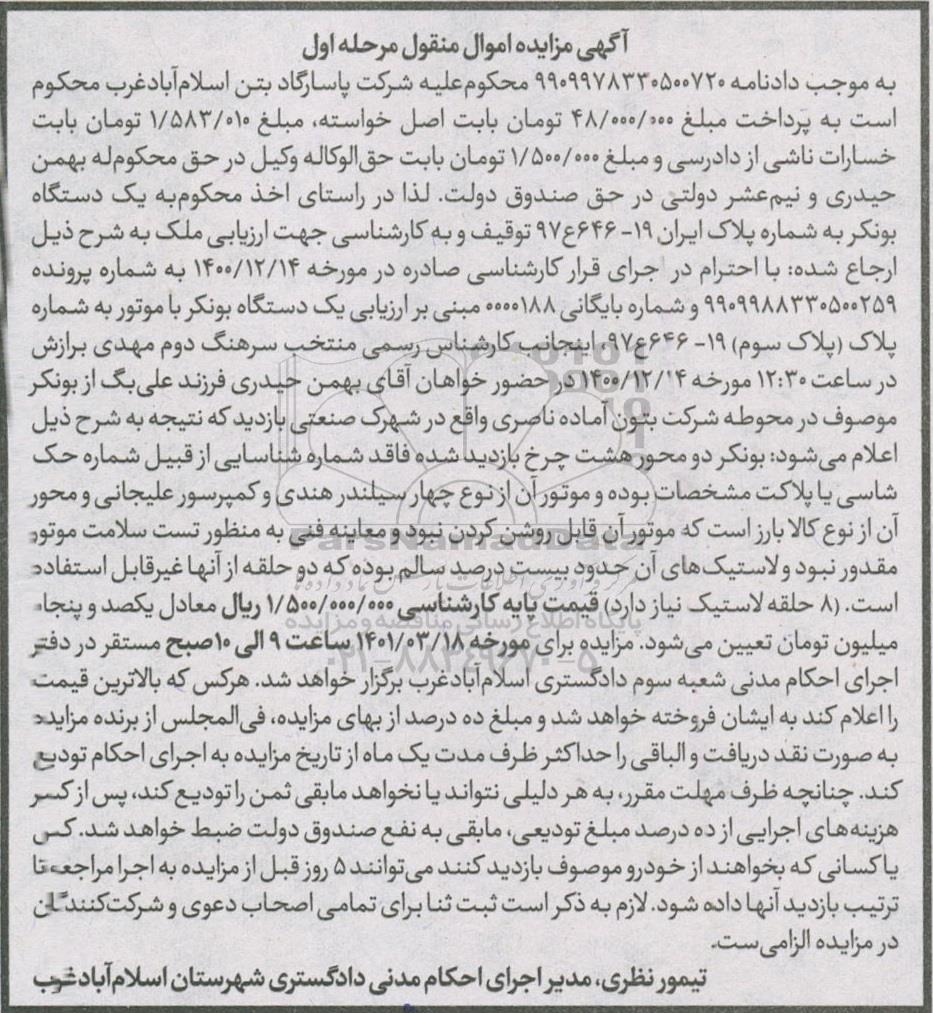 آگهی مزایده اموال منقول مرحله اول
به موجب دادنامه ۹۹۰۹۹۷۸۳۳۰۵۰۰۷۲۰ محکوم‌علیه شرکت پاسارگاد بتن اسلام‌آبادغرب محکوم
است به پرداخت مبلغ ۴۸/۰۰۰/۰۰۰ تومان بابت اصل خواسته، مبلغ ۱/۵۸۳/۰۱۰ تومان بابت
خسارات ناشی از دادرسی و مبلغ ۱/۵۰۰/۰۰۰ تومان بابت حق‌الوکاله وکیل در حق محکوم‌له بهمن
حیدری و نیم‌عشر دولتی در حق صندوق دولت. لذا در راستای اخذ محکوم‌به یک دستگاه
بونکر به شماره پلاک ایران ۱۹- ۶۴۶ع۹۷ توقیف و به کارشناسی جهت ارزیابی ملک به شرح ذیل
ارجاع شده: با احترام در اجرای قرار کارشناسی صادره در مورخه ۱۴۰۰/۱۲/۱۴ به شماره پرونده
۹۹۰۹۹۸۸۳۳۰۵۰۰۲۵۹ و شماره بایگانی ۰۰۰۰۱۸۸ مبنی بر ارزیابی یک دستگاه بونکر با موتور به شماره
پلاک (پلاک سوم) ۱۹- ۶۴۶ع۹۷، اینجانب کارشناس رسمی منتخب سرهنگ دوم مهدی برازش
در ساعت ۱۲:۳۰ مورخه ۱۴۰۰/۱۲/۱۴ در حضور خواهان آقای بهمن حیدری فرزند علی‌بگ از بونکر
موصوف در محوطه شرکت بتون آماده ناصری واقع در شهرک صنعتی بازدید که نتیجه به شرح ذیل
اعلام می‌شود: بونکر دو محور هشت چرخ بازدید شده فاقد شماره شناسایی از قبیل شماره حک
شاسی یا پلاکت مشخصات بوده و موتور آن از نوع چهار سیلندر هندی و کمپرسور علیجانی و محور
آن از نوع کالا بارز است که موتور آن قابل روشن کردن نبود و معاینه فنی به منظور تست سلامت موتور
مقدور نبود و لاستیک‌های آن حدود بیست درصد سالم بوده که دو حلقه از آنها غیرقابل استفاده
است. (۸ حلقه لاستیک نیاز دارد) قیمت پایه کارشناسی ۱/۵۰۰/۰۰۰/۰۰۰ ریال معادل یکصد و پنجاه
میلیون تومان تعیین می‌شود. مزایده برای مورخه ۱۴۰۱/۰۳/۱۸ ساعت ۹ الی ۱۰ صبح مستقر در دفتر
اجرای احکام مدنی شعبه سوم دادگستری اسلام‌آبادغرب برگزار خواهد شد. هرکس که بالاترین قیمت
را اعلام کند به ایشان فروخته خواهد شد و مبلغ ده درصد از بهای مزایده، فی‌المجلس از برنده مزایده
به صورت نقد دریافت و الباقی را حداکثر ظرف مدت یک ماه از تاریخ مزایده به اجرای احکام تودیع
کند. چنانچه ظرف مهلت مقرر، به هر دلیلی نتواند یا نخواهد مابقی ثمن را تودیع کند، پس از کسر
هزینه‌های اجرایی از ده درصد مبلغ تودیعی، مابقی به نفع صندوق دولت ضبط خواهد شد. کس
یا کسانی که بخواهند از خودرو موصوف بازدید کنند می‌توانند ۵ روز قبل از مزایده به اجرا مراجعه تا
ترتیب بازدید آنها داده شود. لازم به ذکر است ثبت ثنا برای تمامی اصحاب دعوی و شرکت‌کنندگان
در مزایده الزامی‌ست.
تیمور نظری، مدیر اجرای احکام مدنی دادگستری شهرستان اسلام‌آبادغرب
ParsNamadData
پایگاه اطلاع رسانی مناقصه و مزایده
۰۲۱-۸۸۳۴۹۶۷۰-۵